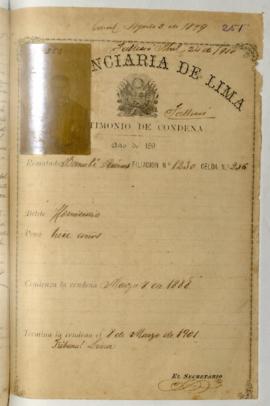 Agosto 3 de 1899 251
Falleció Abril 24 de
NCIARIA DE LIMA
Falleció
TIMONIO DE CONDENA
Año de 189
Rematado FILIACIÓN Nº 1230 CELDA Nº 236
Delito Homicidio
Pena años
Comienza la condena Marzo 7 de 1888
Termina la condena el 7 de Marzo de 1901
Tribunal Lima
EL SECRETARIO